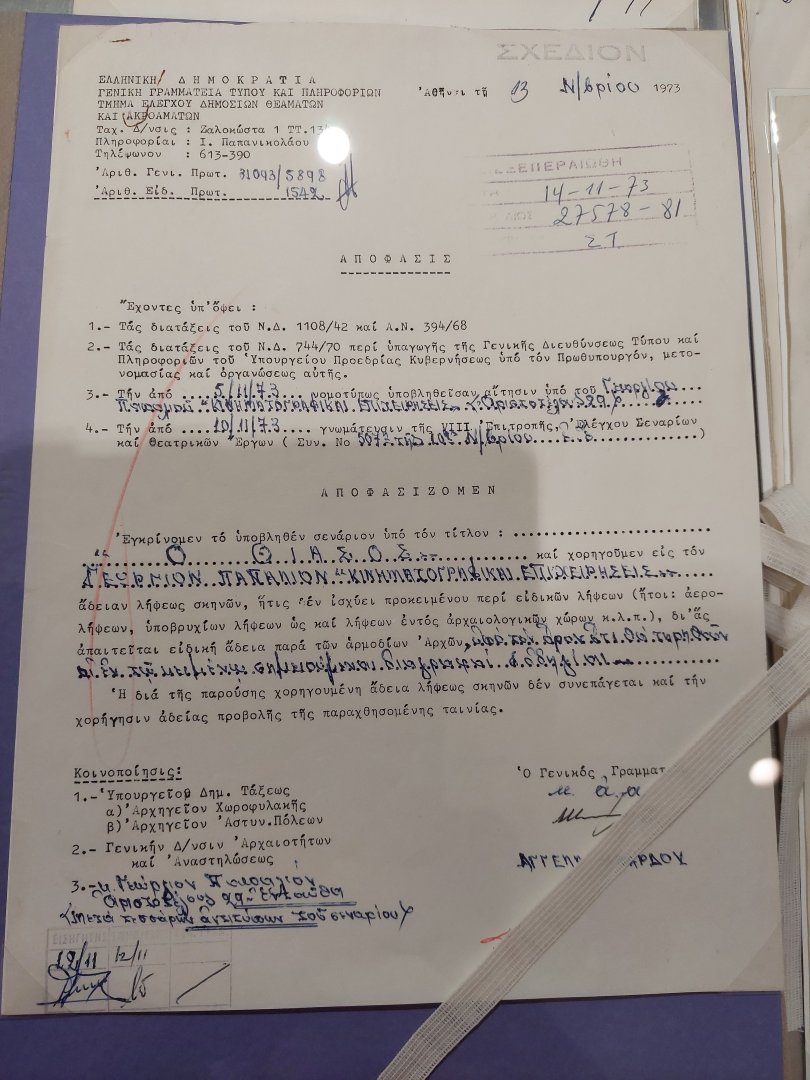 ΣΧΕΔΙΟΝ
ΕΛΛΗΝΙΚΗ ΔΗΜΟΚΡΑΤΙΑ
ΓΕΝΙΚΗ ΓΡΑΜΜΑΤΕΙΑ ΤΥΠΟΥ ΚΑΙ ΠΛΗΡΟΦΟΡΙΩΝ
ΤΜΗΜΑ ΕΛΕΓΧΟΥ ΔΗΜΟΣΙΩΝ ΘΕΑΜΑΤΩΝ
ΚΑΙ ΑΚΡΟΑΜΑΤΩΝ
Ταχ. Δ/νσις : Ζαλοκώστα 1 ΤΤ.
Πληροφορίαι : Ι. Παπανικολάου
Τηλέφωνον : 613-390
Ἀριθ. Γενι. Πρωτ. 31093/5898
Ἀριθ. Εἰδ. Πρωτ. 1542
Ἀθῆναι τῇ 13 Ν/βρίου 1973
ΕΞΕΠΕΡΑΙΩΘΗ
14-11-73
27578-81
ΣΤ
ΑΠΟΦΑΣΙΣ
Ἔχοντες ὑπ' ὄψει :
1.- Τάς διατάξεις τοῦ Ν.Δ. 1108/42 καί Α.Ν. 394/68
2.- Τάς διατάξεις τοῦ Ν.Δ. 744/70 περί ὑπαγωγῆς τῆς Γενικῆς Διευθύνσεως Τύπου καί
Πληροφοριῶν τοῦ Ὑπουργείου Προεδρίας Κυβερνήσεως ὑπό τόν Πρωθυπουργόν, μετο-
νομασίας καί ὀργανώσεως αὐτῆς.
3.- Τήν ἀπό ...5/11/73... νομοτύπως ὑποβληθεῖσαν αἴτησιν ὑπό τοῦ Γεωργίου
Παπαλιοῦ "ΚΙΝΗΜΑΤΟΓΡΑΦΙΚΑΙ ΕΠΙΧΕΙΡΗΣΕΙΣ"
4.- Τήν ἀπό ....10/11/73.... γνωμάτευσιν τῆς VIII Ἐπιτροπῆς Ἐλέγχου Σεναρίων
καί Θεατρικῶν Ἔργων ( Συν. Νο Ν/βρίου ἐ.ἔ. )
ΑΠΟΦΑΣΙΖΟΜΕΝ
Ἐγκρίνομεν τό ὑποβληθέν σενάριον ὑπό τόν τίτλον :
" Ο ΘΙΑΣΟΣ " καί χορηγοῦμεν εἰς τόν
ΓΕΩΡΓΙΟΝ ΠΑΠΑΛΙΟΝ "ΚΙΝΗΜΑΤΟΓΡΑΦΙΚΑΙ ΕΠΙΧΕΙΡΗΣΕΙΣ"
ἄδειαν λήψεως σκηνῶν, ἥτις δέν ἰσχύει προκειμένου περί εἰδικῶν λήψεων (ἤτοι: ἀερο-
λήψεων, ὑποβρυχίων λήψεων ὡς καί λήψεων ἐντός ἀρχαιολογικῶν χώρων κ.λ.π.), δι' ἅς
ἀπαιτεῖται εἰδική ἄδεια παρά τῶν ἁρμοδίων Ἀρχῶν, θά τηρηθοῦν
αἱ ἐν τῷ κειμένῳ σημειούμεναι διαγραφαί
Ἡ διά τῆς παρούσης χορηγουμένη ἄδεια λήψεως σκηνῶν δέν συνεπάγεται καί τήν
χορήγησιν ἀδείας προβολῆς τῆς παραχθησομένης ταινίας.
Κοινοποίησις:
1.-Ὑπουργεῖον Δημ. Τάξεως
α)Ἀρχηγεῖον Χωροφυλακῆς
β)Ἀρχηγεῖον Ἀστυν.Πόλεων
2.- Γενικήν Δ/νσιν Ἀρχαιοτήτων
καί Ἀναστηλώσεως
3.-κ. Γεώργιον Παπαλιον
Ἀριστοτέλους Ἐνταῦθα
(Μετά τεσσάρων ἀντιτύπων τοῦ σεναρίου)
Ὁ Γενικός Γραμματ
κ. ἀ. α
12/11 12/11